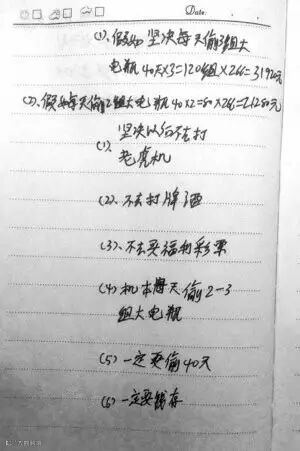 Date:
(1)、假如坚决每天偷3组大
电瓶40天×3=120组×266=31920元
(2)、假如每天偷2组大电瓶40×2=80×266=21280元
坚决以后不去打
(1)、
老虎机
(2)、不去打牌酒
(3)、不去买福利彩票
(4)机本每天偷2-3
组大电瓶
(5)一定要偷40天
(6)一定要钱存